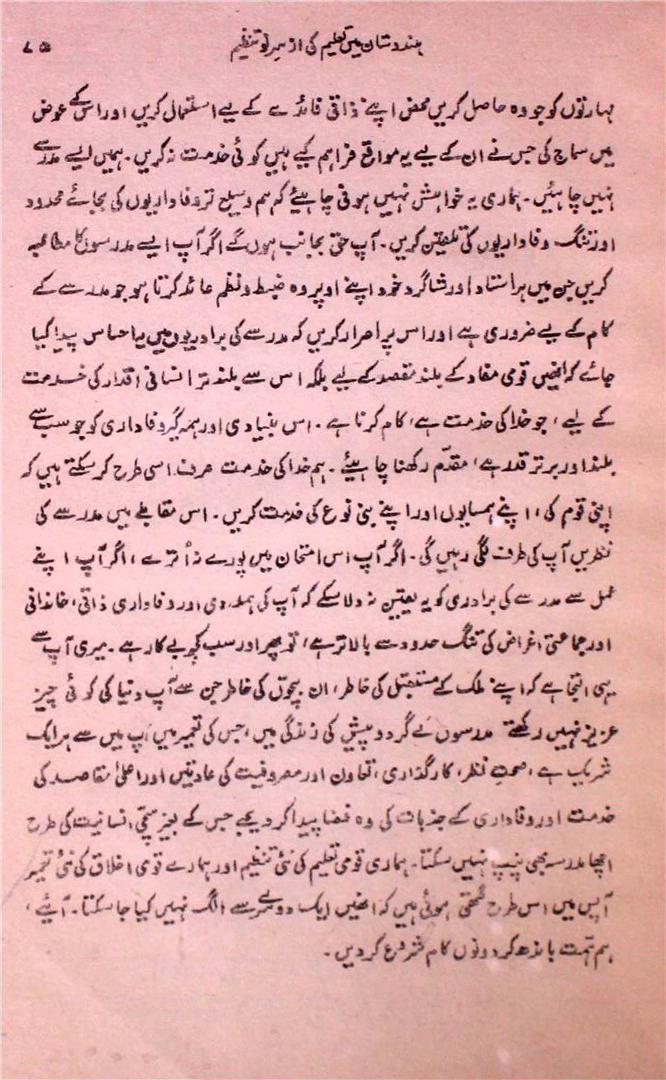 ہندوستان میں تعلیم کی از سرِ نو تنظیم ۷۵
مہارتوں کو جو وہ حاصل کریں محض اپنے ذاتی فائدے کے لیے استعمال کریں اور اس کے عوض
میں سماج کی جس نے ان کے لیے یہ مواقع فراہم کیے ہیں کوئی خدمت نہ کریں۔ ہمیں ایسے مدرسے
نہیں چاہئیں۔ ہماری یہ خواہش نہیں ہونی چاہیئے کہ ہم وسیع تر وفاداریوں کی بجائے محدود
اور تنگ وفاداریوں کی تلقین کریں۔ آپ حق بجانب ہوں گے اگر آپ ایسے مدرسوں کا مطالبہ
کریں جن میں ہر استاد اور شاگرد خود اپنے اوپر وہ ضبط و نظم عائد کرتا ہو جو مدرسے کے
کام کے لیے ضروری ہے اور اس پر اصرار کریں کہ مدرسے کی برادریوں میں یہ احساس پیدا کیا
جائے کہ انھیں قومی مفاد کے بلند مقصد کے لیے بلکہ اس سے بلند تر انسانی اقدار کی خدمت
کے لیے، جو خدا کی خدمت ہے، کام کرنا ہے۔ اس بنیادی اور ہمہ گیر وفاداری کو جو سب سے
بلند اور برتر قدر ہے، مقدّم رکھنا چاہیئے۔ ہم خدا کی خدمت صرف اسی طرح کر سکتے ہیں کہ
اپنی قوم کی، اپنے ہمسایوں اور اپنے بنی نوع کی خدمت کریں۔ اس مقابلے میں مدرسے کی
نظریں آپ کی طرف لگی رہیں گی۔ اگر آپ اس امتحان میں پورے نہ اُترے، اگر آپ اپنے
عمل سے مدرسے کی برادری کو یہ یقین نہ دلا سکے کہ آپ کی ہمدردی اور وفاداری ذاتی، خاندانی
اور جماعتی اغراض کی تنگ حدود سے بالاتر ہے، تو پھر اور سب کچھ بے کار ہے۔ میری آپ سے
یہی التجا ہے کہ اپنے ملک کے مستقبل کی خاطر، ان بچوں کی خاطر جن سے آپ دنیا کی کوئی چیز
عزیز نہیں رکھتے مدرسوں کے گرد و پیش کی زندگی میں، جس کی تعمیر میں آپ میں سے ہر ایک
شریک ہے، صحتِ نظر، کارگذاری، تعاون اور مصروفیت کی عادتیں اور اعلیٰ مقاصد کی
خدمت اور وفاداری کے جذبات کی وہ فضا پیدا کر دیجیے جس کے بغیر سچی انسانیت کی طرح
اچھا مدرسہ بھی پنپ نہیں سکتا۔ ہماری قومی تعلیم کی نئی تنظیم اور ہمارے قومی اخلاق کی نئی تعمیر
آپس میں اس طرح گتھی ہوئی ہیں کہ انھیں ایک دوسرے سے الگ نہیں کیا جا سکتا۔ آئیے،
ہم ہمّت باندھ کر دونوں کام شروع کر دیں۔